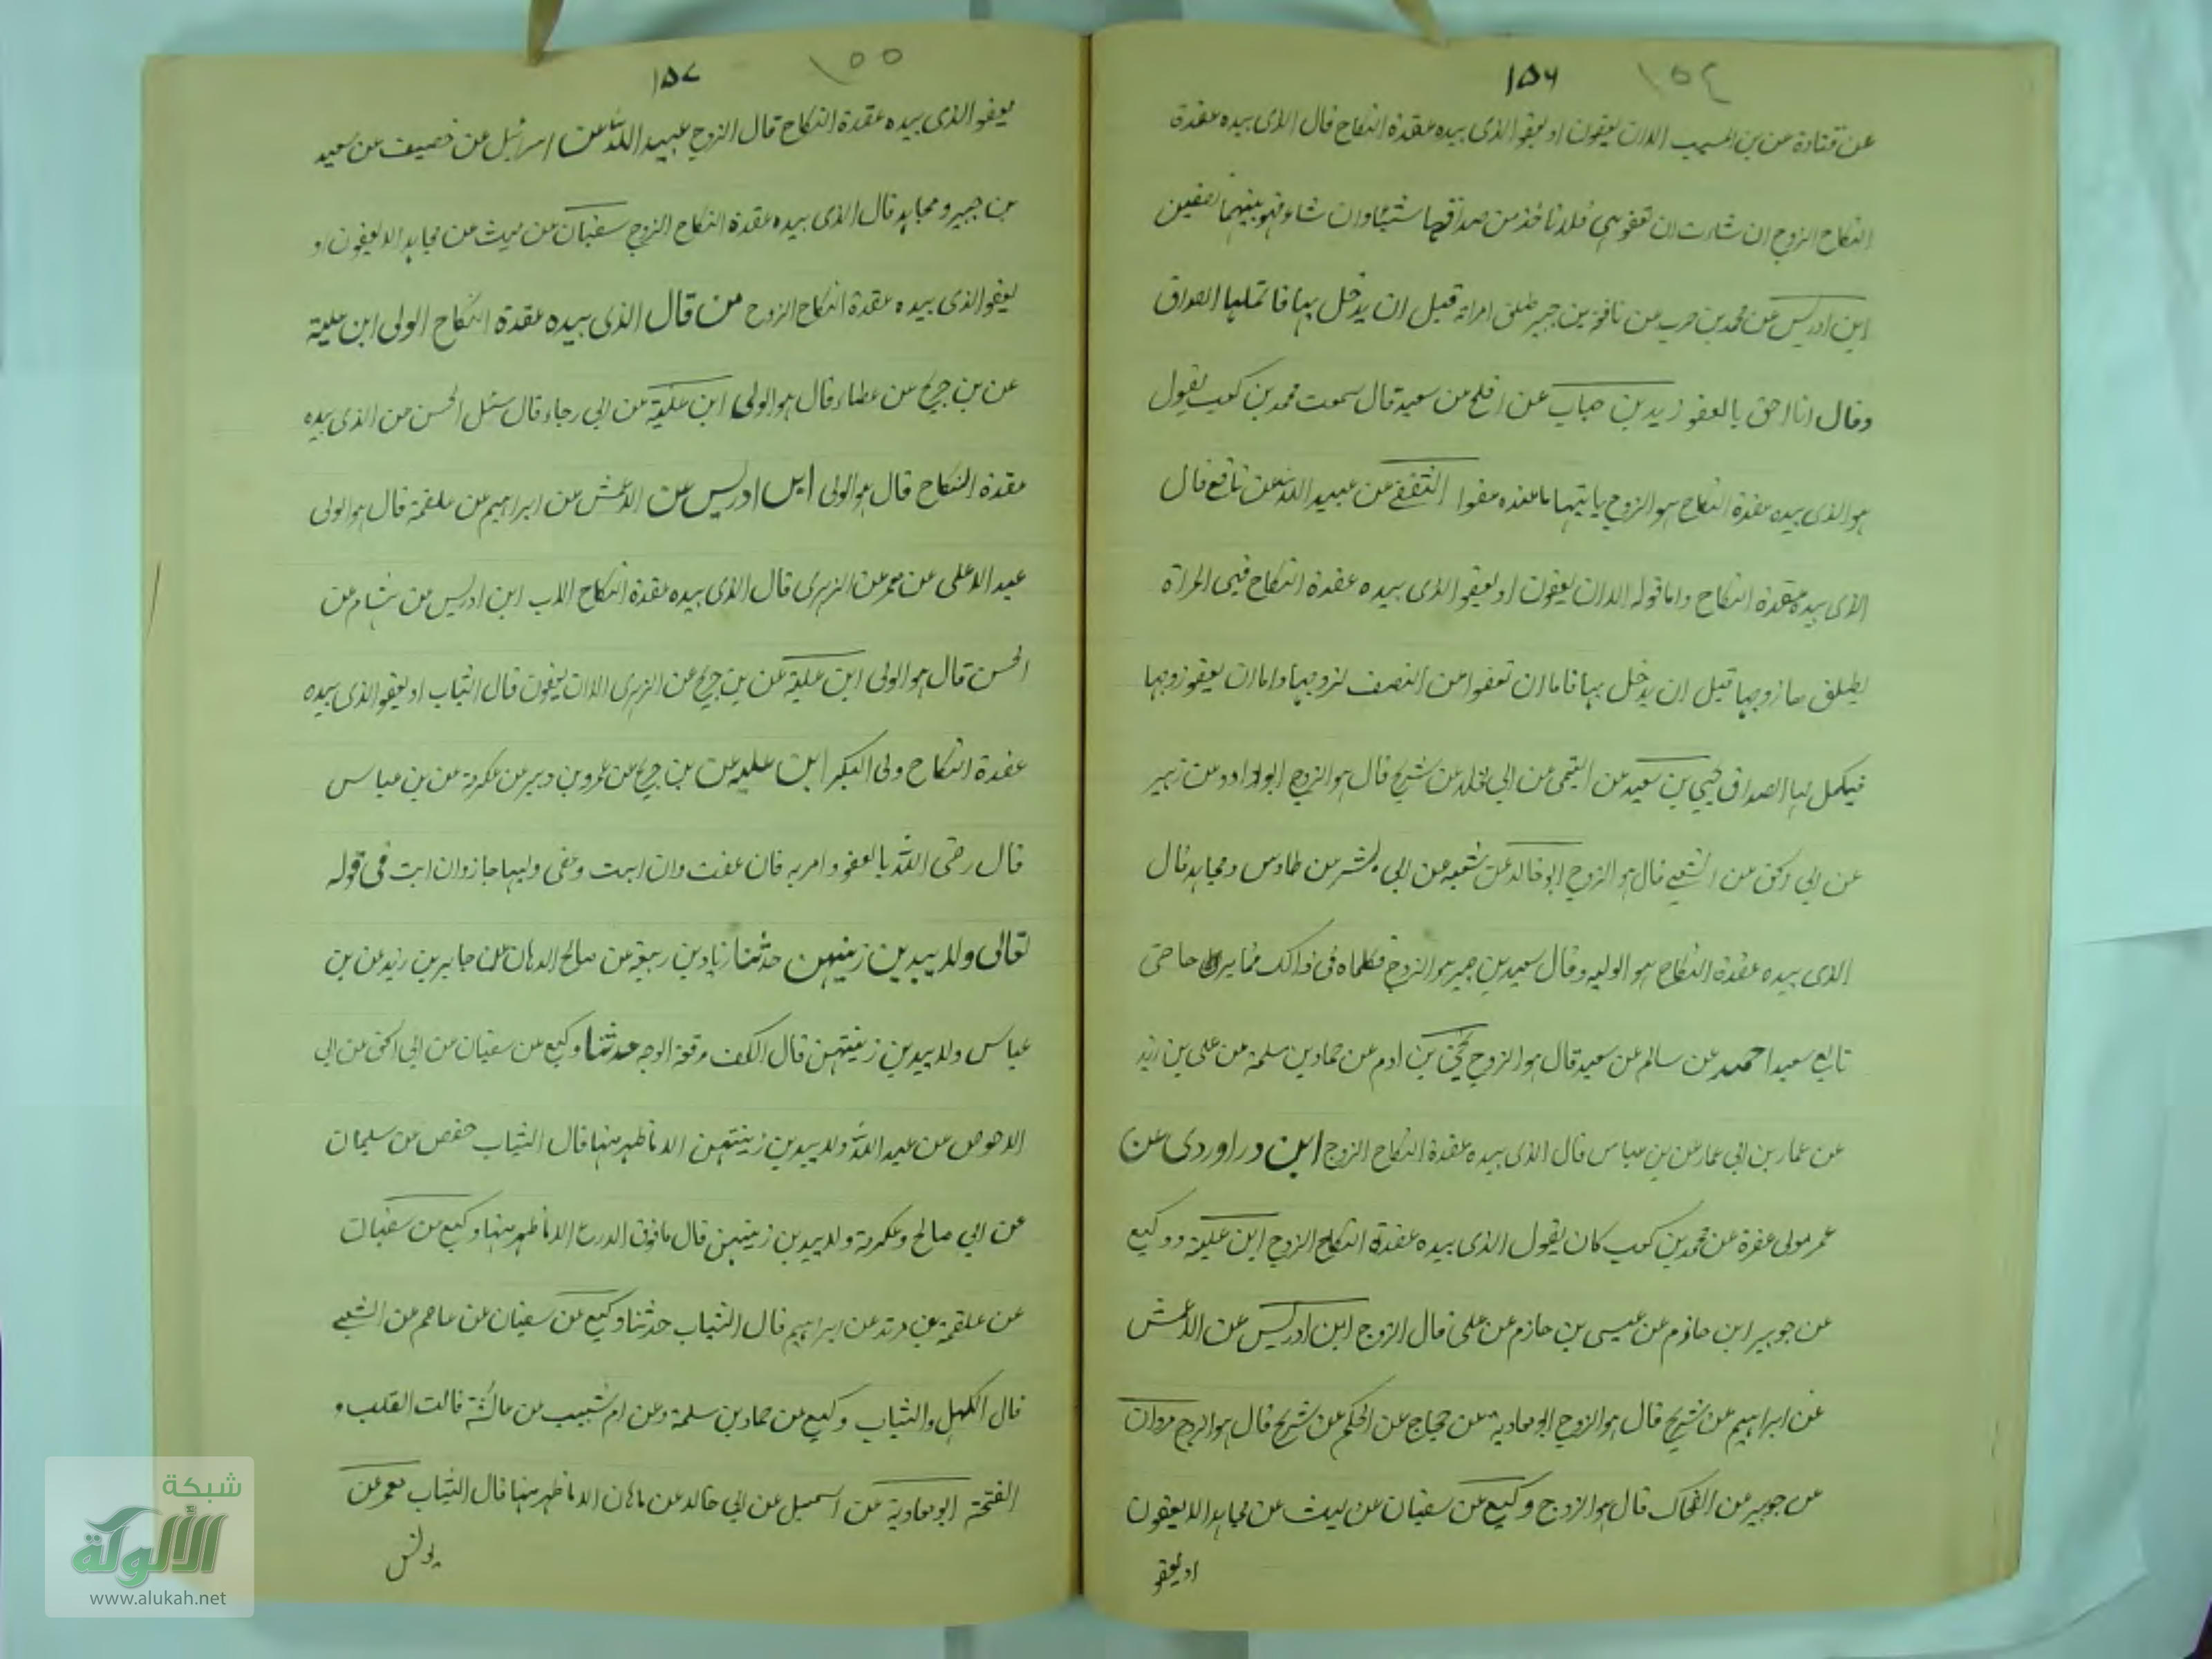 ١٥٦
١٥٤
عن قتادة عن بن المسيب الا ان يعفون او يعفو الذى بيده عقدة النكاح قال الذى بيده عقدة
النكاح الزوج ان شاءت ان تعفو هى فلا تاخذ من صداقها شيئا وان شاء فهو بينهما نصفين
ابن ادريس عن محمد بن حرب عن نافع بن جبير طلق امراته قبل ان يدخل بها فاتم لها الصداق
وقال انا احق بالعفو زيد بن حباب عن افلح بن سعيد قال سمعت محمد بن كعب يقول
هو الذى بيده عقدة النكاح هو الزوج عفوا الثقفى عن عبيد الله عن نافع قال
الذى بيده عقدة النكاح واما قوله الا ان يعفون او يعفو الذى بيده عقدة النكاح فهى المراة
يطلقها زوجها قبل ان يدخل بها فاما ان تعفوا من النصف لزوجها واما ان يعفو زوجها
فيكمل لها الصداق يحيى بن سعيد عن التيمى عن ابى مخلد عن شريح قال هو الزوج ابوداود عن زهير
عن ابى اسحق عن الشعبى قال هو الزوج ابو خالد عن شعبه عن ابى بشر عن طاوس ومجاهد قال
الذى بيده عقدة النكاح هو الوليه وقال سعيد بن جبير هو الزوج فكلماه فى ذالك حتى
تابع سعيدا حميد عن سالم عن سعيد قال هو الزوج يحيى بن ادم عن حماد بن سلمة عن على بن زيد
عن عمار بن ابى عمار عن بن عباس قال الذى بيده عقدة النكاح الزوج ابن دراوردى عن
عمر مولى عفرة عن محمد بن كعب كان يقول الذى بيده عقدة النكاح الزوج ابن علية ووكيع
عن جوبير ابن حازم عن عيسى بن حازم عن على قال الزوج ابن ادريس عن الاعمش
عن ابراهيم عن شريح قال هو الزوج ابو معاوية عن حجاج عن الحكم عن شريح قال هو الزوج مروان
عن جوبير عن الضحاك قال هو الزوج وكيع عن سفيان عن ليث عن مجاهد الا يعفون
او يعفو
١٥٧
١٥٥
يعفو الذى بيده عقدة النكاح قال الزوج عبيد الله عن اسرائيل عن خصيف عن سعيد
بن جبير ومجاهد قال الذى بيده عقدة النكاح الزوج سفيان عن ليث عن مجاهد الا يعفون او
يعفو الذى بيده عقدة النكاح الزوج من قال الذى بيده عقدة النكاح الولى ابن علية
عن بن جريج عن عطاء قال هو الولى ابن علية عن ابى رجاء قال سئل الحسن من الذى بيده
عقدة النكاح قال هو الولى ابن ادريس عن الاعمش عن ابراهيم عن علقمة قال هو الولى
عبد الاعلى عن معمر عن الزهرى قال الذى بيده عقدة النكاح الاب ابن ادريس عن هشام عن
الحسن قال هو الولى ابن علية عن بن جريج عن الزهرى الا ان يعفون قال الثياب او يعفو الذى بيده
عقدة النكاح ولى البكر ابن عليه عن بن جريج عن عمرو بن دينر عن عكرمة عن بن عباس
قال رضى الله بالعفو وامر به فان عفت وان ابت وعفى وليها جاز وان ابت فى قوله
تعالى ولا يبدين زينتهن حدثنا زياد بن ربيع عن صالح الدهان عن جابر بن زيد عن بن
عباس ولا يبدين زينتهن قال الكف ورقعة الوجه حدثنا وكيع عن سفيان عن ابى اسحق عن ابى
الاحوص عن عبد الله ولا يبدين زينتهن الا ما ظهر منها قال الثياب حفص عن سليمان
عن ابى صالح وعكرمة ولا يبدين زينتهن قال ما فوق الدرع الا ما ظهر منها وكيع عن سفيان
عن علقمة بن مرثد عن ابراهيم قال الثياب حدثنا وكيع عن سفيان عن عاصم عن الشعبى
قال الكحل والثياب وكيع عن حماد بن سلمة وعن ام شبيب عن عائشة قالت القلب و
الفتحة ابو معاوية عن اسمعيل عن ابى خالد عن ماهان الا ما ظهر منها قال الثياب معمر عن
يونس
شبكة
الألوكة
www.alukah.net